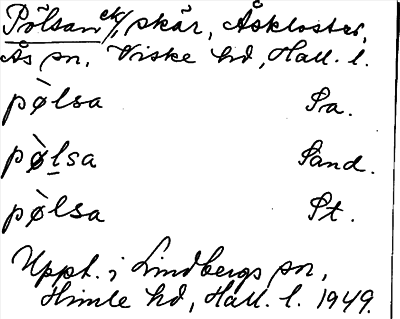 Pölsan ek/, skär, Åskloster,
Ås sn, Viske hd, Hall. l.
pø̀lsa Sa.
pø̀lsa Sand.
pø̀lsa St.
Uppt. i Lindbergs sn,
Himle hd, Hall. l. 1949.